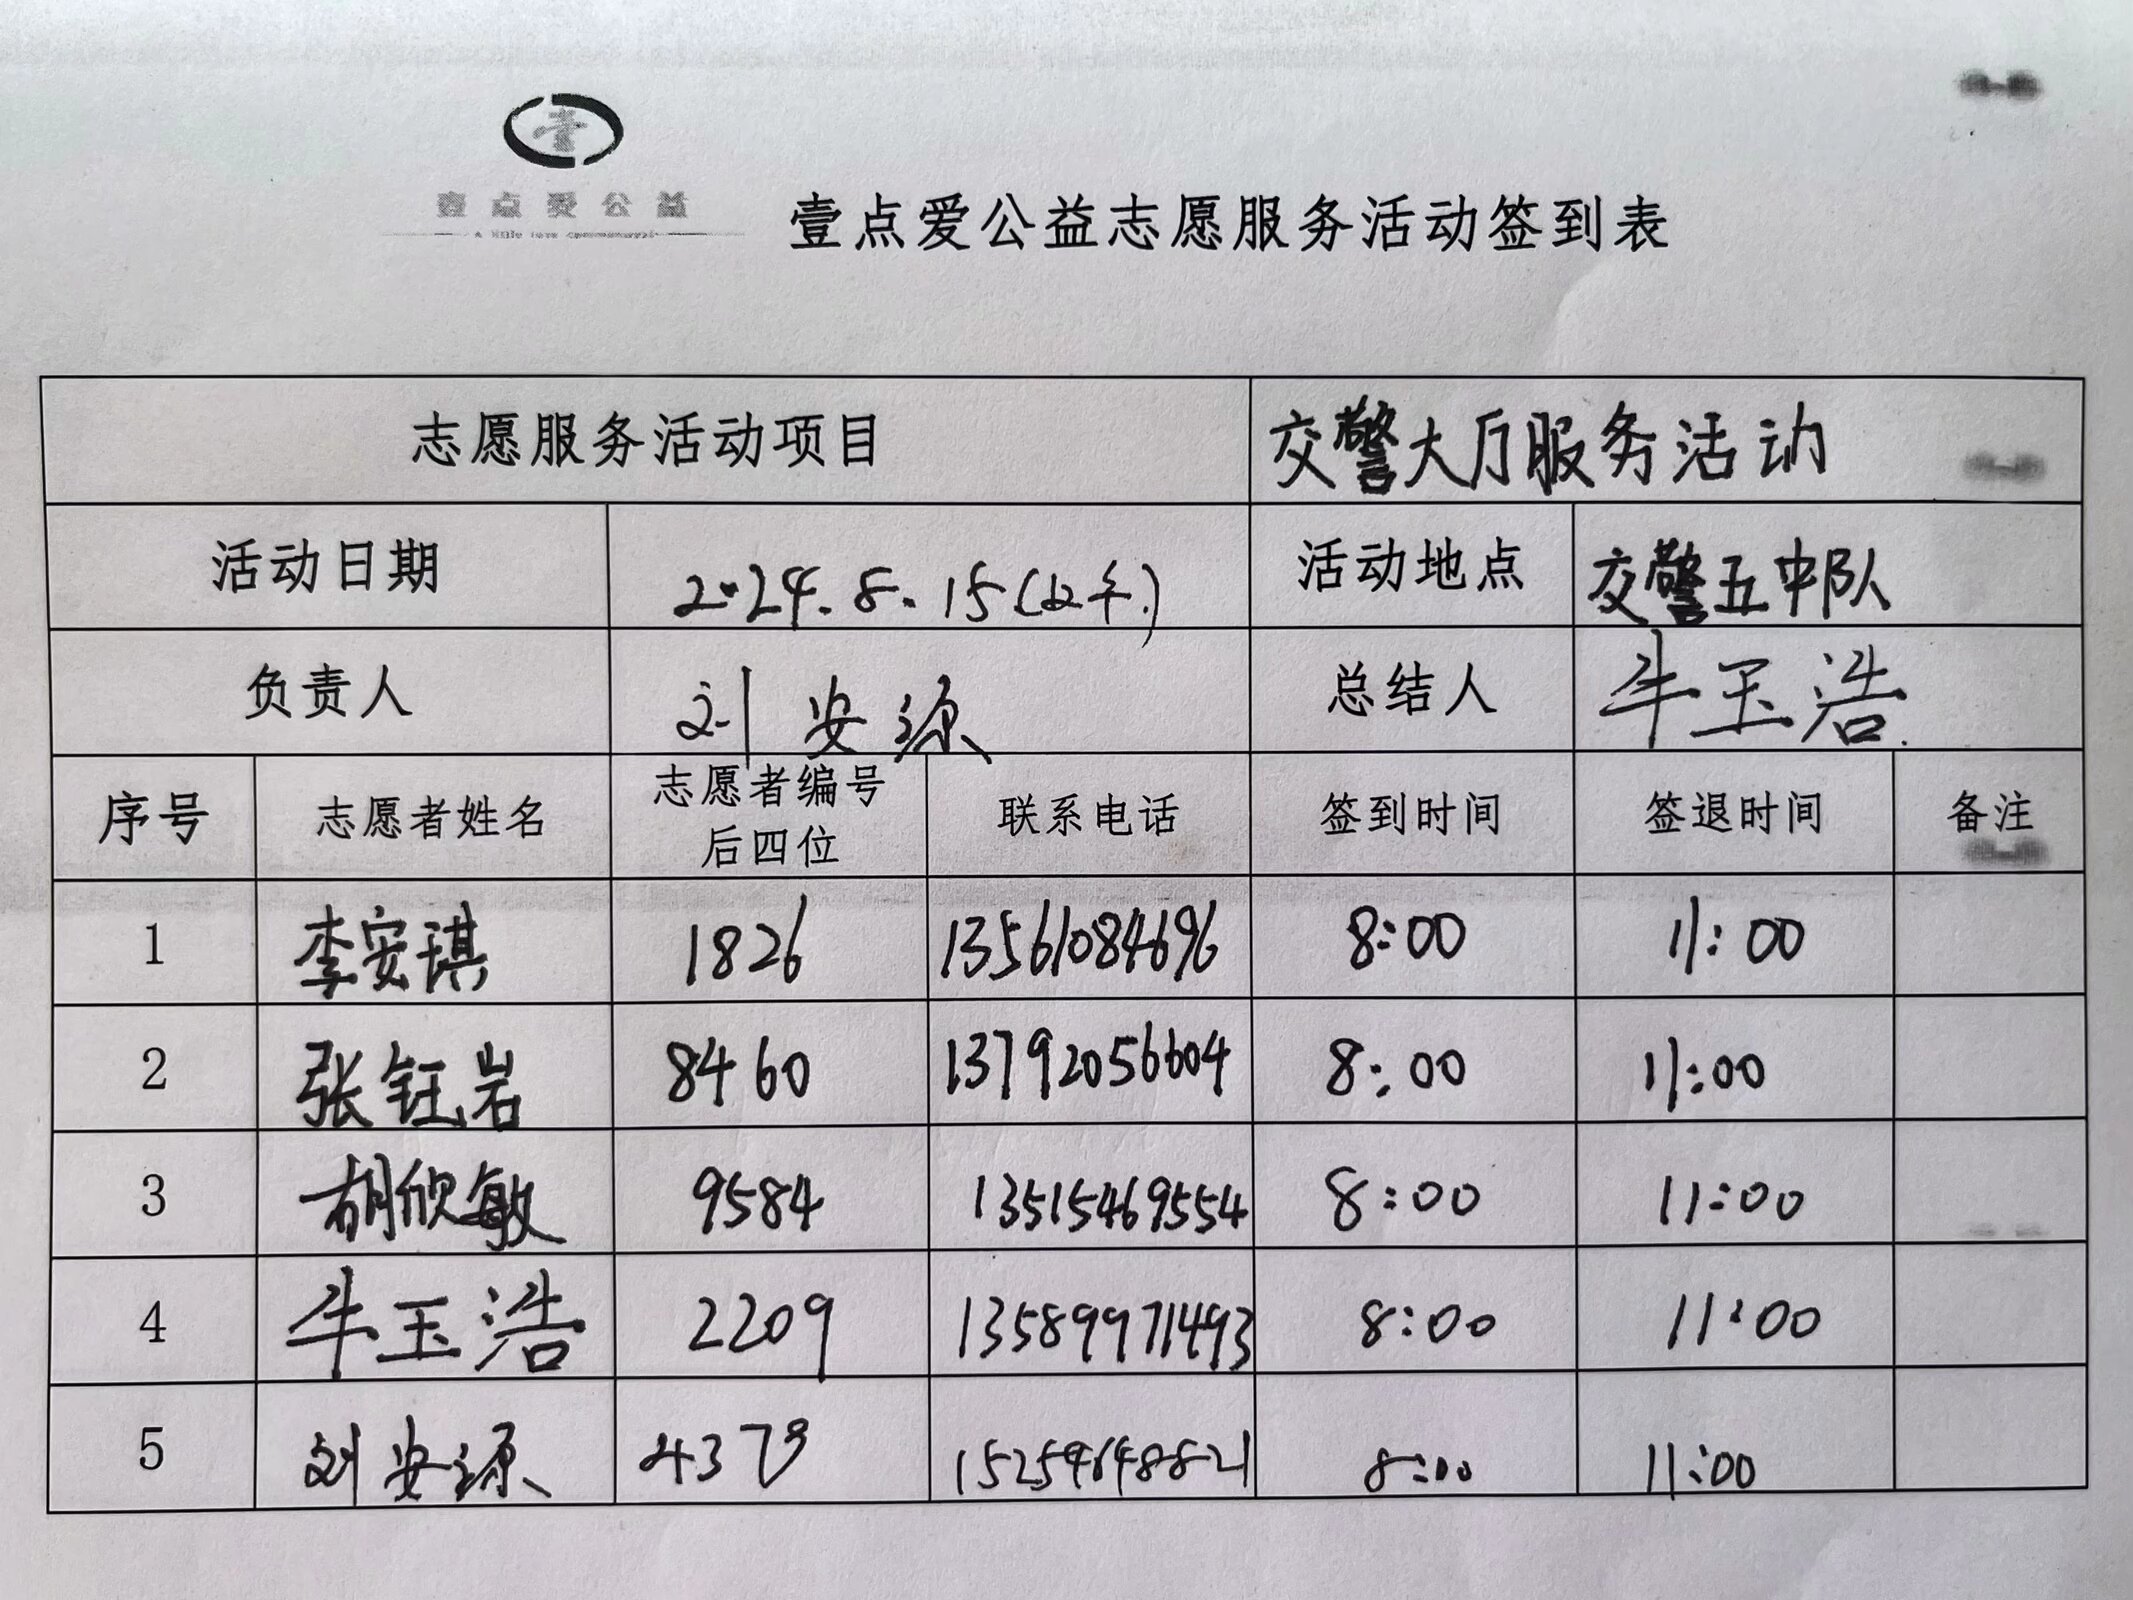 壹
壹点爱公益
壹点爱公益志愿服务活动签到表
志愿服务活动项目 交警大厅服务活动
活动日期 2024.8.15 活动地点 交警五中队
负责人 刘安源 总结人 牛玉浩
序号 志愿者姓名 志愿者编号 联系电话 签到时间 签退时间 备注
后四位
1 李安琪 1826 13561084696 8:00 11:00
2 张钰岩 8460 13792056604 8:00 11:00
3 胡欣敏 9584 13515469554 8:00 11:00
4 牛玉浩 2209 13589971493 8:00 11:00
5 刘安源 4379 15254648821 8:00 11:00